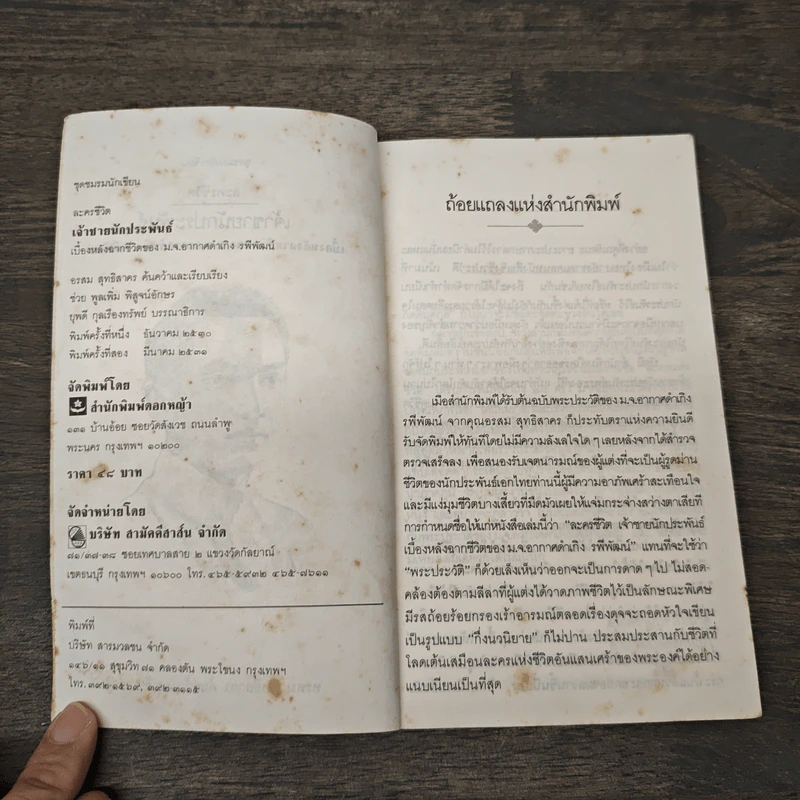 ชุดชมรมนักเขียน
ละครชีวิต
เจ้าชายนักประพันธ์
เบื้องหลังฉากชีวิตของ ม.จ.อากาศดำเกิง รพีพัฒน์
อรสม สุทธิสาคร ค้นคว้าและเรียบเรียง
ช่วย พูลเพิ่ม พิสูจน์อักษร
ยุพดี กุลเรืองทรัพย์ บรรณาธิการ
พิมพ์ครั้งที่หนึ่ง ธันวาคม ๒๕๓๐
พิมพ์ครั้งที่สอง มีนาคม ๒๕๓๑
จัดพิมพ์โดย
สำนักพิมพ์ดอกหญ้า
๑๓๑ บ้านอ้อย ซอยวัดสังเวช ถนนลำพู
พระนคร กรุงเทพฯ ๑๐๒๐๐
ราคา ๔๘ บาท
จัดจำหน่ายโดย
บริษัท สามัคคีสาส์น จำกัด
๗๑/๓๗-๓๘ ซอยเทศบาลสาย ๒ แขวงวัดกัลยาณ์
เขตธนบุรี กรุงเทพฯ ๑๐๖๐๐ โทร. ๔๖๕-๕๙๓๒ ๔๖๕-๗๖๑๑
พิมพ์ที่
บริษัท สารมวลชน จำกัด
๑๔๖/๑๑ สุขุมวิท ๗๑ คลองตัน พระโขนง กรุงเทพฯ
โทร. ๓๙๒-๑๕๖๙, ๓๙๒-๓๑๑๕
ถ้อยแถลงแห่งสำนักพิมพ์
เมื่อสำนักพิมพ์ได้รับต้นฉบับพระประวัติของ ม.จ.อากาศดำเกิง
รพีพัฒน์ จากคุณอรสม สุทธิสาคร ก็ประทับตราแห่งความยินดี
รับจัดพิมพ์ให้ทันทีโดยไม่มีความลังเลใจใด ๆ เลยหลังจากได้สำรวจ
ตรวจเสร็จลง เพื่อสนองรับเจตนารมณ์ของผู้แต่งที่จะเป็นผู้รูดม่าน
ชีวิตของนักประพันธ์เอกไทยท่านนี้ผู้มีความอาภัพเศร้าสะเทือนใจ
และมีแง่มุมชีวิตบางเสี้ยวที่มืดมัวเผยให้แจ่มกระจ่างสว่างตาเสียที
การกำหนดชื่อให้แก่หนังสือเล่มนี้ว่า “ละครชีวิต เจ้าชายนักประพันธ์
เบื้องหลังฉากชีวิตของ ม.จ.อากาศดำเกิง รพีพัฒน์” แทนที่จะใช้ว่า
“พระประวัติ” ก็ด้วยเล็งเห็นว่าออกจะเป็นการดาด ๆ ไป ไม่สอด-
คล้องต้องตามลีลาที่ผู้แต่งได้วาดภาพชีวิตไว้เป็นลักษณะพิเศษ
มีรสถ้อยร้อยกรองเร้าอารมณ์ตลอดเรื่องดุจจะถอดหัวใจเขียน
เป็นรูปแบบ “กึ่งนวนิยาย” ก็ไม่ปาน ประสมประสานกับชีวิตที่
โลดเต้นเสมือนละครแห่งชีวิตอันแสนเศร้าของพระองค์ได้อย่าง
แนบเนียนเป็นที่สุด